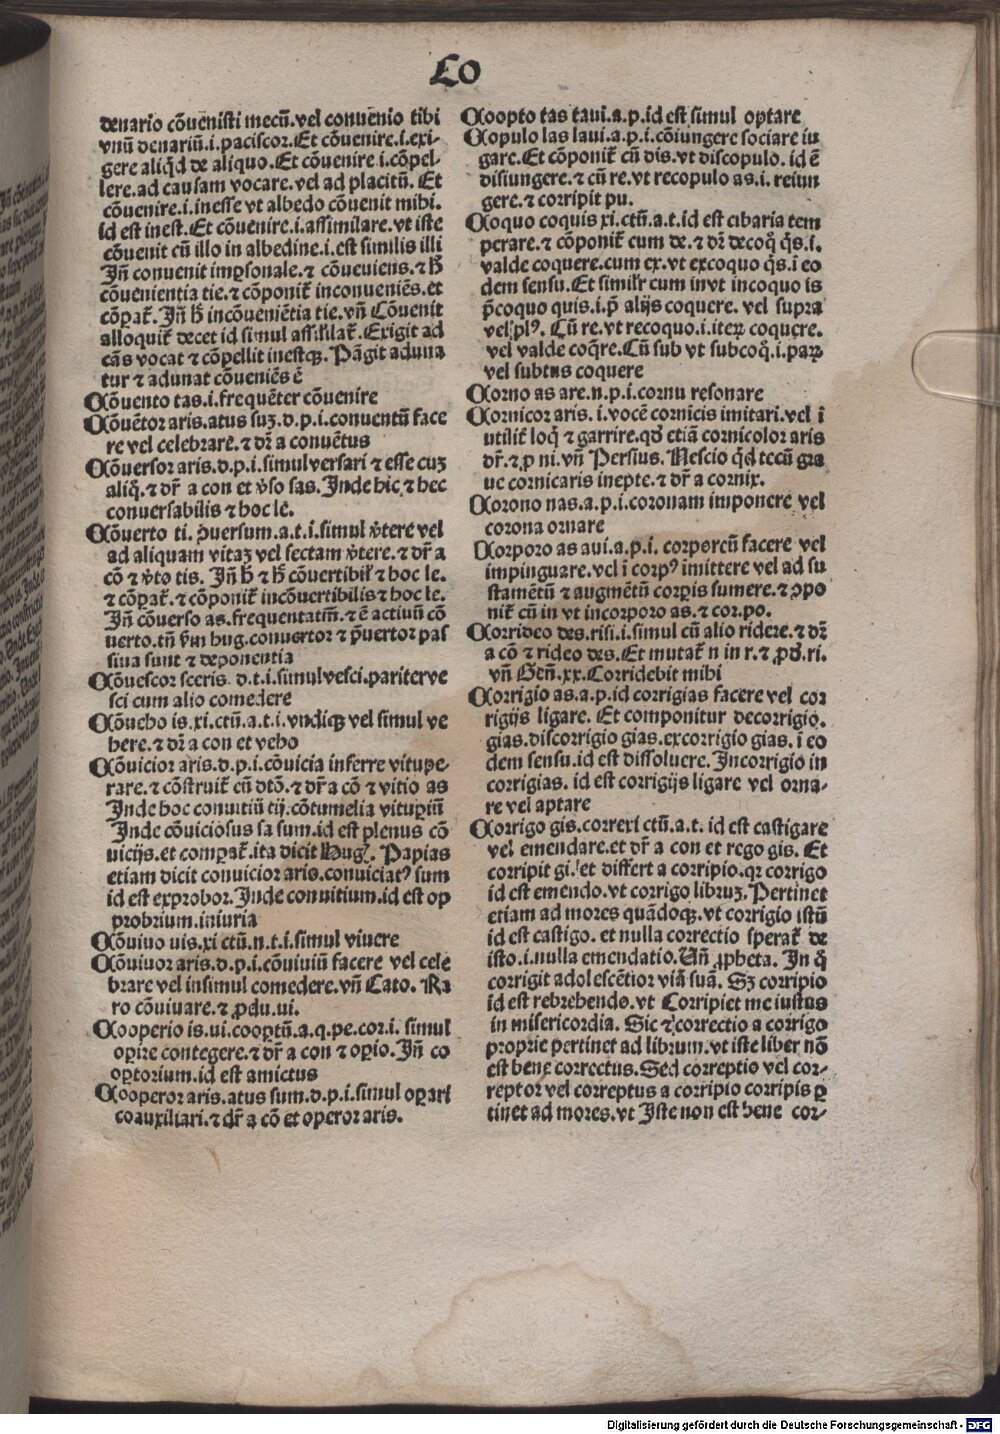 CO
denario cōuenisti mecū.vel conuenio tibi
vnū denariū.i.paciscor.Et cōuenire.i.exi-
gere aliqd̄ de aliquo.Et cōuenire.i.cōpel-
lere.ad causam vocare.vel ad placitū. Et
cōuenire.i.inesse vt albedo cōuenit mihi.
id est inest.Et cōuenire.i.assimilare.vt iste
cōuenit cū illo in albedine.i.est similis illi
Jn̄ conuenit imꝑsonale.⁊ cōueuiens.⁊ h̄
cōuenientia tie.⁊ cōponit᷑ inconueniēs.et
cōꝑat᷑. Jn̄ h̄ incōueniētia tie.vn̄ Cōuenit
alloquit᷑ decet id simul assil̄at᷑.Exigit ad
cās vocat ⁊ cōpellit inestqꝫ. Pāgit aduna
tur ⁊ adunat cōueniēs ē
Cōuento tas.i.frequēter cōuenire
Cōuētor aris.atus suꝫ.d.p.i.conuentū face
re vel celebrare.⁊ dr̄ a conuētus
Cōuersor aris.d.p.i.simul versari ⁊ esse cuꝫ
aliq̄.⁊ dr̄ a con et v̓so sas.Jnde hic ⁊ hec
conuersabilis ⁊ hoc le.
Cōuerto ti. ꝓuersum.a.t.i.simul v̓tere vel
ad aliquam vitaꝫ vel sectam v̓tere.⁊ dr̄ a
cō ⁊ v̓to tis. Jn̄ h̄ ⁊ h̄ cōuertibil᷑ ⁊ hoc le.
⁊ cōꝑat᷑.⁊ cōponit᷑ incōuertibilis ⁊ hoc le.
Jn̄ cōuerso as.frequentatiū.⁊ ē actiuū cō
uerto.tn̄ ẜm hug.conuertor ⁊ p̄uertor pas
siua sunt ⁊ deponentia
Cōuescor sceris.d.t.i.simul vesci.pariter ve
sci cum alio comedere
Cōueho is.xi.ctū.a.t.i.vndiqꝫ vel simul ve
here.⁊ dr̄ a con et veho
Cōuicior aris.d.p.i.cōuicia inferre vitupe-
rare.⁊ cōstruit᷑ cū dtō.⁊ dr̄ a cō ⁊ vitio as
Jnde hoc conuitiū tij.cōtumelia vituꝑiū
Jnde cōuiciosus sa sum.id est plenus cō
uicijs.et comꝑat᷑.ita dicit Hug᷑. Papias
etiam dicit conuicior aris.conuiciatꝰ sum
id est exprobor.Jnde conuitium.id est op
probrium.iniuria
Cōuiuo uis.xi ctū.n.t.i.simul viuere
Cōuiuor aris.d.p.i.cōuiuiū facere vel cele
brare vel insimul comedere.vn̄ Cato. Ra
ro cōuiuare.⁊ ꝓdu.ui.
Cooperio is.ui.cooꝑtū.a.q.pe.cor.i. simul
oꝑire contegere.⁊ dr̄ a con ⁊ oꝑio.Jn̄ co
oꝑtorium.id est amictus
Cooperor aris.atus sum.d.p.i.simul oꝑari
coauxiliari.⁊ dr̄ a cō et operor aris.
Coopto tas taui.a.p.id est simul optare
Copulo las laui.a.p.i.cōiungere sociare iu
gare.Et cōponit᷑ cū dis.vt discopulo. id ē
disiungere.⁊ cū re.vt recopulo as.i. reiun
gere.⁊ corripit pu.
Coquo coquis xi.ctū.a.t.id est cibaria tem
perare.⁊ cōponit᷑ cum de.⁊ dr̄ decoq̊ q̇s.i.
valde coquere.cum ex.vt excoquo q̇s.ī eo
dem sensu.Et simil᷑r cum in vt incoquo is
p̄coquo quis.i.p̄ alijs coquere. vel supra
vel plꝰ. Cū re.vt recoquo.i.iteꝝ coquere.
vel valde coq̄re.Cū sub vt subcoq̊.i.paꝝ
vel subtus coquere
Corno as are.n.p.i.cornu resonare
Cornicor aris. i.vocē cornicis imitari.vel ī
utilit᷑ loq̇ ⁊ garrire.qd̄ etiā cornicolor aris
dr̄.⁊ ꝓ ni.vn̄ Persius. Nescio qd̄ tecū gra
ue cornicaris inepte.⁊ dr̄ a cornix.
Corono nas.a.p.i.coronam imponere vel
corona ornare
Corporo as aui.a.p.i. corporeū facere vel
impinguare.vel ī corpꝰ imittere vel ad su
stamētū ⁊ augmētū corꝑis sumere.⁊ ꝯpo
nit᷑ cū in vt incorporo as.⁊ cor.po.
Corrideo des.risi.i.simul cū alio ridere.⁊ dr̄
a cō ⁊ rideo des.Et mutat᷑ n in r.⁊ ꝓd̄.ri.
vn̄ Gen̄.xx.Corridebit mihi
Corrigio as.a.p.id corrigias facere vel cor
rigijs ligare. Et componitur decorrigio.
gias.discorrigio gias.excorrigio gias.ī eo
dem sensu.id est dissoluere.Jncorrigio in
corrigias. id est corrigijs ligare vel orna-
re vel aptare
Corrigo gis.correxi ctū.a.t. id est castigare
vel emendare.et dr̄ a con et rego gis. Et
corripit gi.et differt a corripio.qꝛ corrigo
id est emendo.vt corrigo libruꝫ.Pertinet
etiam ad mores quādoqꝫ.vt corrigio istū
id est castigo. et nulla correctio sperat᷑ de
isto.i.nulla emendatio.Un̄ ꝓpheta. Jn q̊
corrigit adolescētior viā suā. Sꝫ corripio
id est rebrehendo.vt Corripiet me iustus
in misericordia. Sic ⁊ correctio a corrigo
proprie pertinet ad librum.vt iste liber nō
est bene correctus. Sed correptio vel cor-
reptor vel correptus a corripio corripis ꝑ
tinet ad mores.vt Jste non est bene cor-
Digitalisierung gefördert durch die Deutsche Forschungsgemeinschaft - DFG